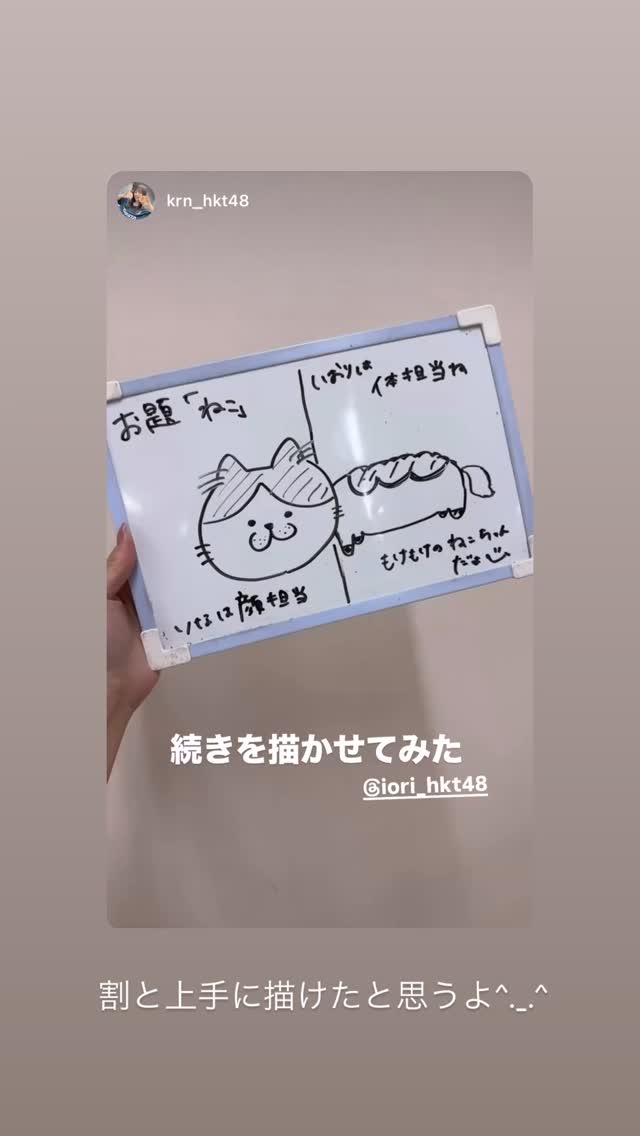 krn_hkt48
お題「ねこ」
いおりは
体担当ね
もけもけのねこちゃん
だよ
は顔担当
続きを描かせてみた
@iori_hkt48
割と上手に描けたと思うよ^._.^